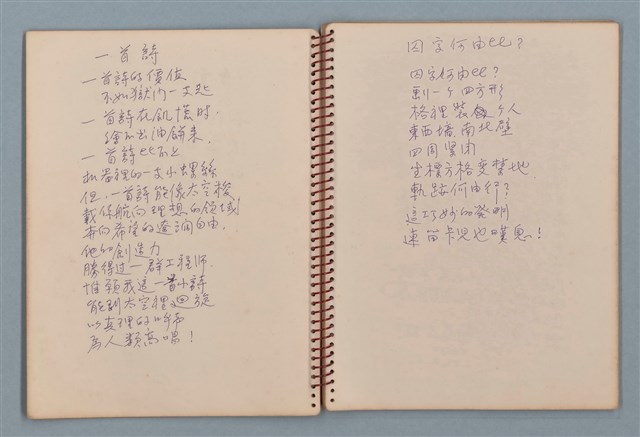 一首詩
一首詩的價值
不如獄內一支匙
一首詩在飢懷時
繪不出油餅來.
一首詩比不上
机器裡的一支小螺絲
但,一首詩能像太空梭
載你航向理想的領域!
奔向希望的遼濶自由.
他的創造力
勝得过一群工程师.
惟願我这一首小詩
能到太空裡迴旋
以真理的
為人類高唱!
囚字何由比?
囚字何由比?
劃一个四方形
格裡裝个人
東西墻南北壁
四周坚閉
坐標方格变禁地
軌跡何由行?
這巧妙的發明
連笛卡兒也嘆息!